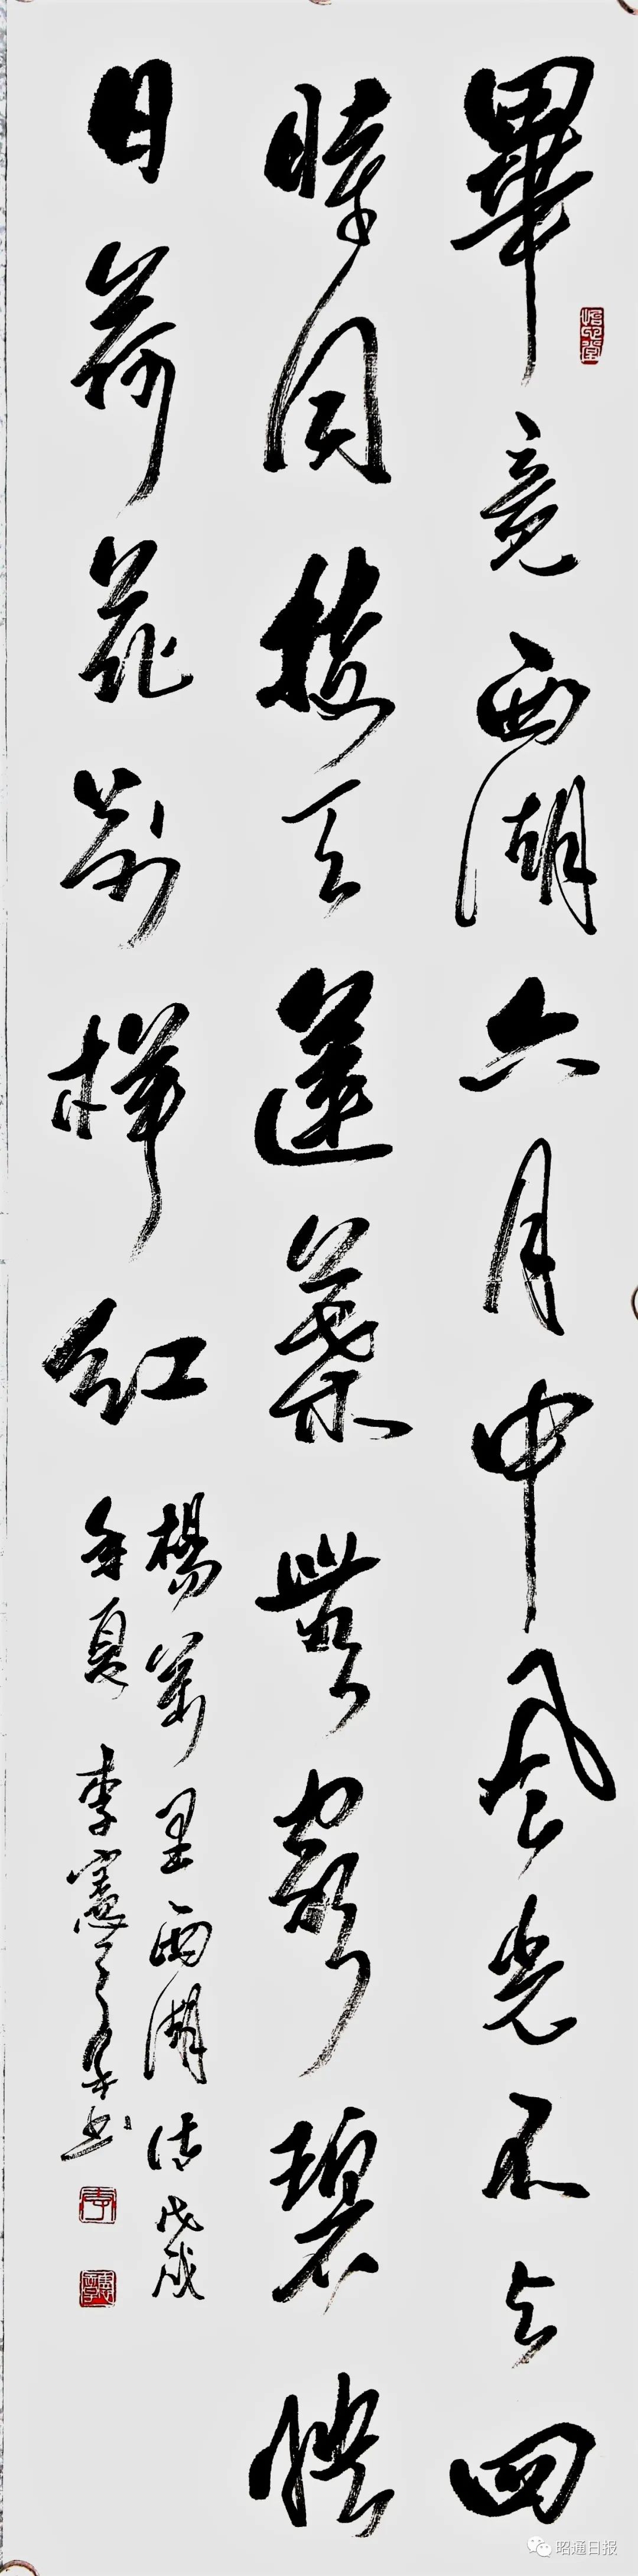 畢竟西湖六月中風光不与四
時同接天蓮葉無窮碧映
日荷花別樣紅
楊萬里西湖詩戊戌
年夏李憲章书
昭通日报